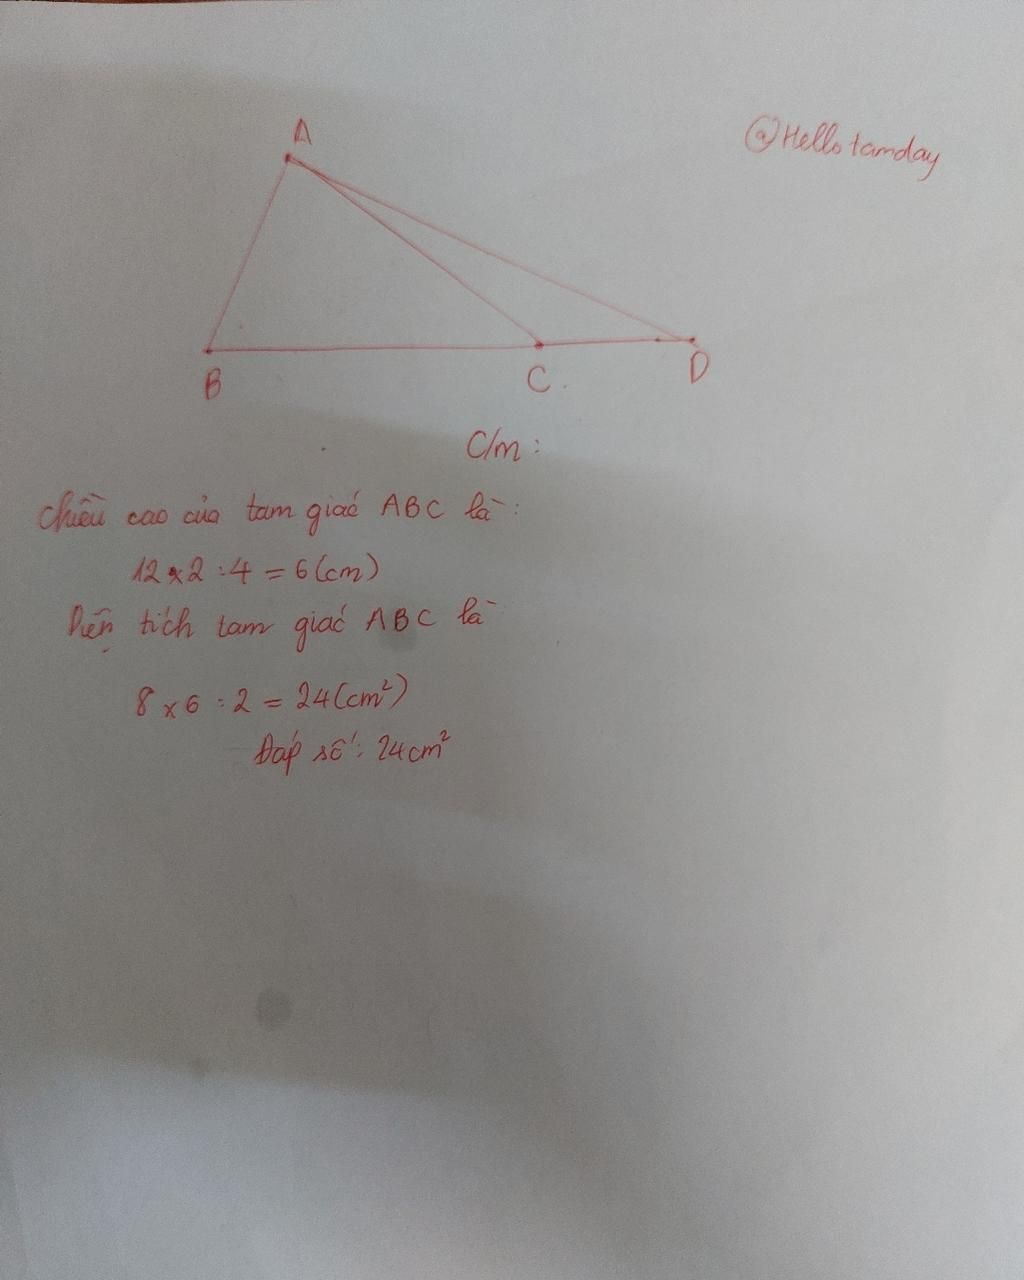 A
@Hellotamday
B
C
D
C/m:
Chiều cao của tam giác ABC là:
12 x 2 : 4 = 6 (cm)
Diện tích tam giác ABC là
8 x 6 : 2 = 24 (cm²)
Đáp số: 24cm²